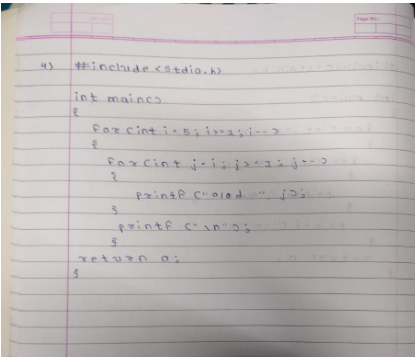 Page No.:
4) #include <stdio.h>
int main()
{
for(int i=5; i>=1; i--)
{
for(int j=i; j>=1; j--)
{
printf ("%d ", j);
}
printf ("\n");
}
return 0;
}